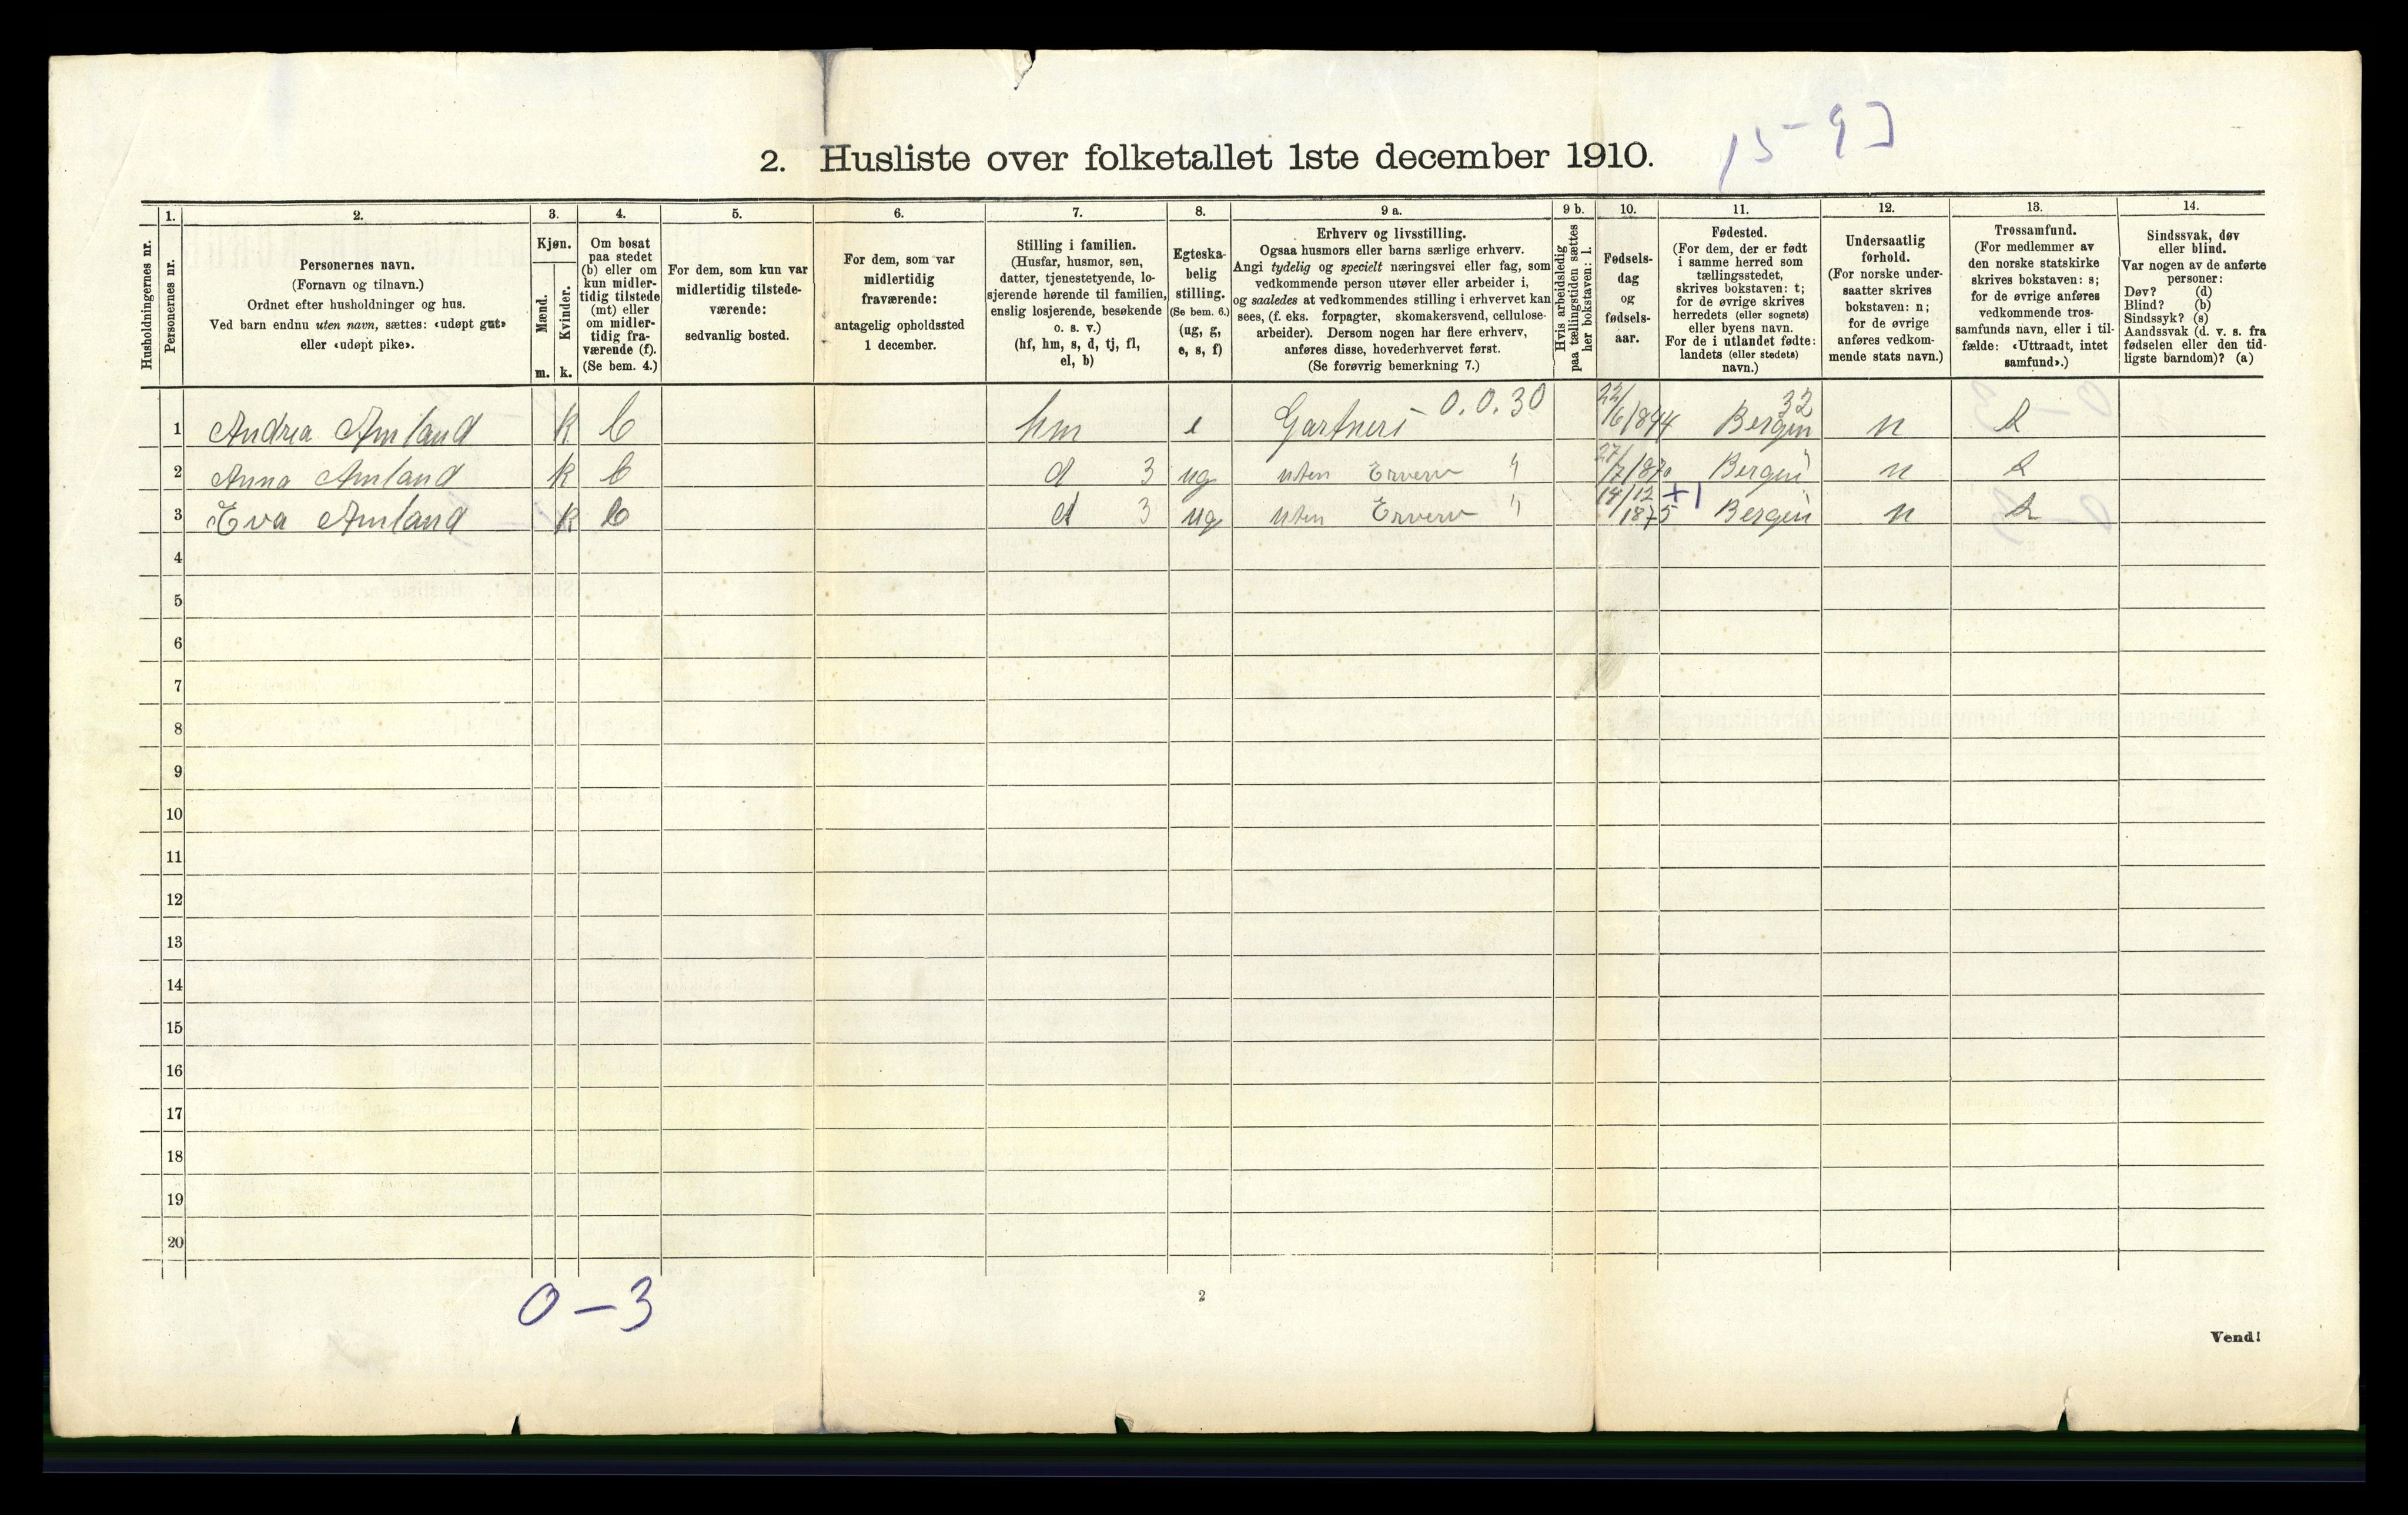 15-93
2. Husliste over folketallet 1ste december 1910.
1. 2. 3. 4. 5. 6. 7. 8. 9 a. 9 b. 10. 11. 12. 13. 14.
Husholdningernes nr.
Personernes nr.
Personernes navn.
(Fornavn og tilnavn.)
Ordnet efter husholdninger og hus.
Ved barn endnu uten navn, sættes: «udøpt gut»
eller «udøpt pike».
Kjøn.
Mænd.
Kvinder.
m. k.
Om bosat
paa stedet
(b) eller om
kun midler-
tidig tilstede
(mt) eller
om midler-
tidig fra-
værende (f).
(Se bem. 4.)
For dem, som kun var
midlertidig tilstede-
værende:
sedvanlig bosted.
For dem, som var
midlertidig
fraværende:
antagelig opholdssted
1 december.
Stilling i familien.
(Husfar, husmor, søn,
datter, tjenestetyende, lo-
sjerende hørende til familien,
enslig losjerende, besøkende
o. s. v.)
(hf, hm, s, d, tj, fl,
el, b)
Egteska-
belig
stilling.
(Se bem. 6.)
(ug, g,
e, s, f)
Erhverv og livsstilling.
Ogsaa husmors eller barns særlige erhverv.
Angi tydelig og specielt næringsvei eller fag, som
vedkommende person utøver eller arbeider i,
og saaledes at vedkommendes stilling i erhvervet kan
sees, (f. eks. forpagter, skomakersvend, cellulose-
arbeider). Dersom nogen har flere erhverv,
anføres disse, hovederhvervet først.
(Se forøvrig bemerkning 7.)
Hvis arbeidsledig
paa tællingstiden sættes
her bokstaven: l.
Fødsels-
dag
og
fødsels-
aar.
Fødested.
(For dem, der er født
i samme herred som
tællingsstedet,
skrives bokstaven: t;
for de øvrige skrives
herredets (eller sognets)
eller byens navn.
For de i utlandet fødte:
landets (eller stedets)
navn.)
Undersaatlig
forhold.
(For norske under-
saatter skrives
bokstaven: n;
for de øvrige
anføres vedkom-
mende stats navn.)
Trossamfund.
(For medlemmer av
den norske statskirke
skrives bokstaven: s;
for de øvrige anføres
vedkommende tros-
samfunds navn, eller i til-
fælde: «Uttraadt, intet
samfund».)
Sindssvak, døv
eller blind.
Var nogen av de anførte
personer:
Døv? (d)
Blind? (b)
Sindssyk? (s)
Aandssvak (d. v. s. fra
fødselen eller den tid-
ligste barndom)? (a)
1 Andrea Amland k b hm e Gartneri 0.0.30 22/6/1844 Bergen 32 n s
2 Anna Amland k b d 3 ug uten Erverv " 27/7/1870 Bergen n s
3 Eva Amland k b d 3 ug uten Erverv " 14/12 1875 +1 Bergen n s
4
5
6
7
8
9
10
11
12
13
14
15
16
17
18
19
20
0-3
2
Vend!